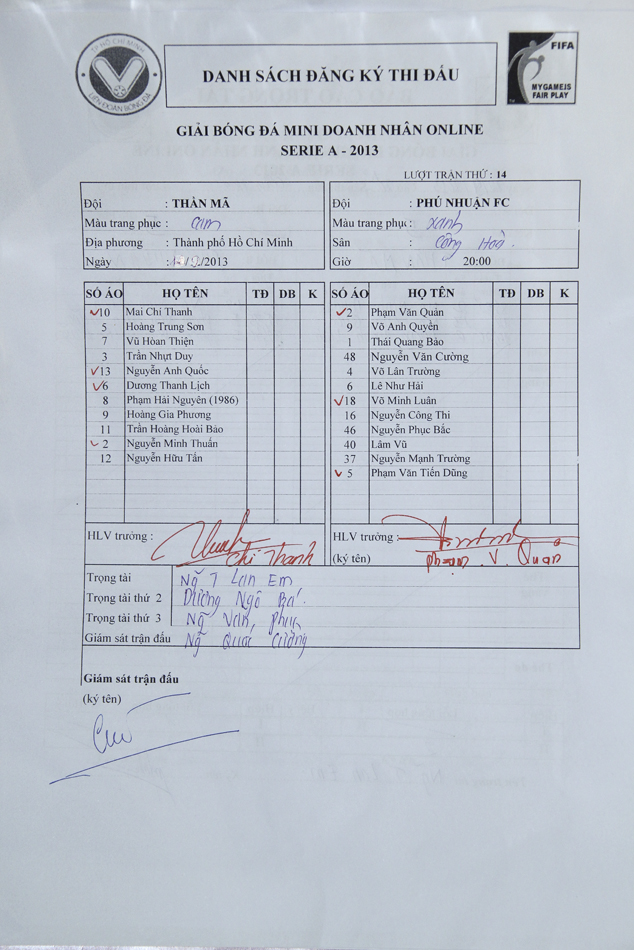 TP HỒ CHÍ MINH
LIÊN ĐOÀN BÓNG ĐÁ
DANH SÁCH ĐĂNG KÝ THI ĐẤU
FIFA
MY GAME IS
FAIR PLAY
GIẢI BÓNG ĐÁ MINI DOANH NHÂN ONLINE
SERIE A - 2013
LƯỢT TRẬN THỨ : 14
Đội : THẦN MÃ
Màu trang phục : Cam
Địa phương : Thành phố Hồ Chí Minh
Ngày : /2013
Đội : PHÚ NHUẬN FC
Màu trang phục : Xanh
Sân : Cộng Hoà.
Giờ 20:00
SỐ ÁO HỌ TÊN TĐ DB K
10 Mai Chí Thanh
5 Hoàng Trung Sơn
7 Vũ Hòan Thiện
3 Trần Nhựt Duy
13 Nguyễn Anh Quốc
6 Dương Thanh Lịch
8 Phạm Hải Nguyên (1986)
9 Hoàng Gia Phương
11 Trần Hoàng Hoài Bảo
2 Nguyễn Minh Thuấn
12 Nguyễn Hữu Tấn
SỐ ÁO HỌ TÊN TĐ DB K
2 Phạm Văn Quản
9 Võ Anh Quyền
1 Thái Quang Bảo
48 Nguyễn Văn Cường
4 Võ Lân Trường
6 Lê Như Hải
18 Võ Minh Luân
16 Nguyễn Công Thi
46 Nguyễn Phục Bắc
40 Lâm Vũ
37 Nguyễn Mạnh Trường
5 Phạm Văn Tiến Dũng
HLV trưởng :
Chí Thanh
HLV trưởng :
(ký tên) phạm. V. Quản
Trọng tài Ng T Lan Em
Trọng tài thứ 2 Dương Ngô Bá
Trọng tài thứ 3 Ng Văn Phụng
Giám sát trận đấu Ng Quốc Cường
Giám sát trận đấu
(ký tên)